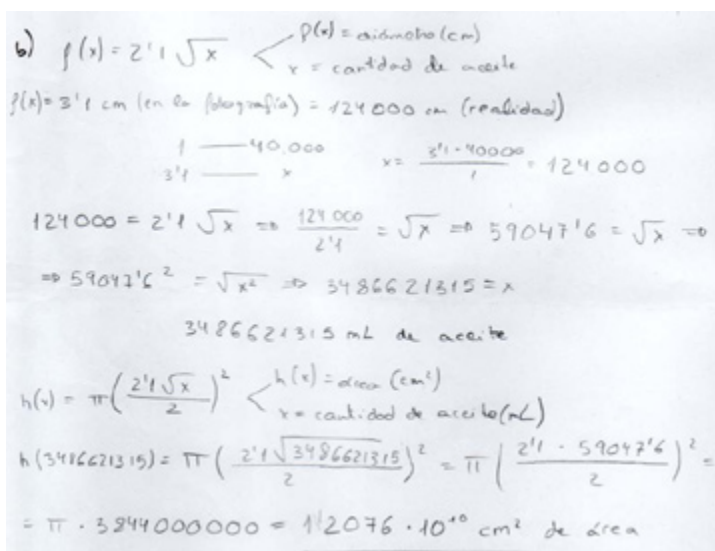 b) f(x) = 2'1 √x < f(x) = diámetro (cm)
x = cantidad de aceite
f(x) = 3'1 cm (en la fotografía) = 124000 cm (realidad)
1 — 40.000 x = 3'1 · 40000 / 1 = 124000
3'1 — x
124000 = 2'1 √x ⇒ 124000 / 2'1 = √x ⇒ 59047'6 = √x ⇒
⇒ 59047'6² = √x² ⇒ 3486621315 = x
3486621315 mL de aceite
h(x) = π (2'1 √x / 2)² < h(x) = área (cm²)
x = cantidad de aceite (mL)
h(3486621315) = π (2'1 √3486621315 / 2)² = π (2'1 · 59047'6 / 2)² =
= π · 3844000000 = 1'2076 · 10¹⁰ cm² de área